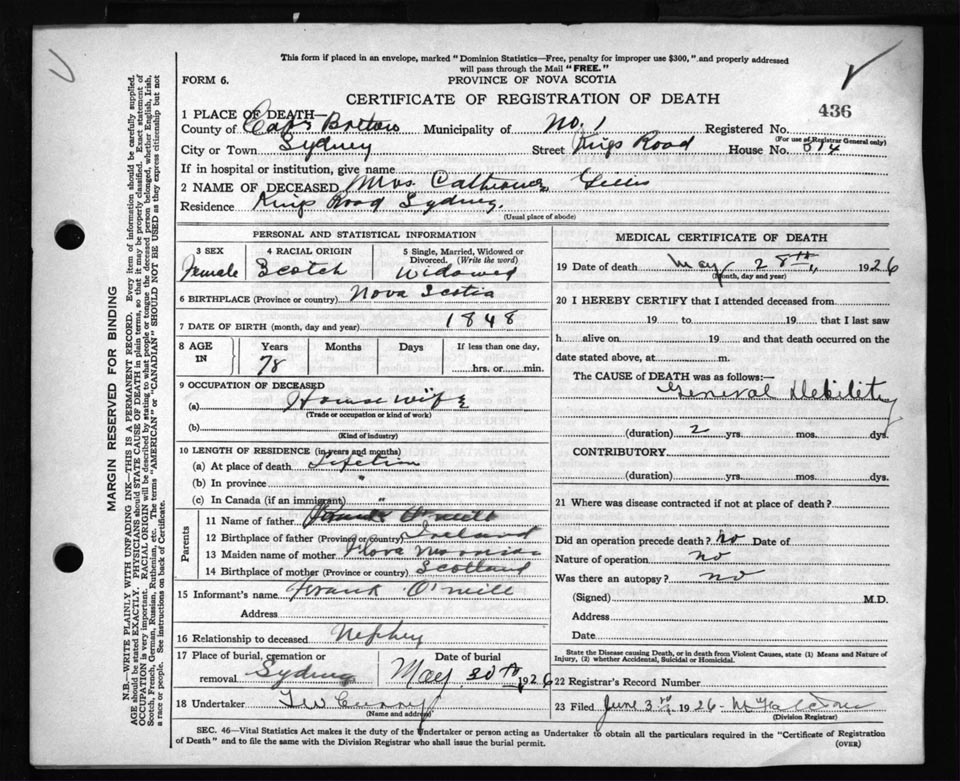 This form if placed in an envelope, marked "Dominion Statistics—Free, penalty for improper use $300," and properly addressed
will pass through the Mail "FREE."
FORM 6.
PROVINCE OF NOVA SCOTIA
CERTIFICATE OF REGISTRATION OF DEATH
436
1 PLACE OF DEATH—
County of Cape Breton Municipality of No. 1 Registered No.
(For use of Registrar General only)
City or Town Sydney Street Kings Road House No. 514
If in hospital or institution, give name
2 NAME OF DECEASED Mrs. Catherine Gillis
Residence Kings Road Sydney.
(Usual place of abode)
PERSONAL AND STATISTICAL INFORMATION
3 SEX Female
4 RACIAL ORIGIN Scotch
5 Single, Married, Widowed or Divorced. (Write the word) Widowed
6 BIRTHPLACE (Province or country) Nova Scotia
7 DATE OF BIRTH (month, day and year) 1848
8 AGE IN Years 78 Months Days If less than one day, hrs. or min.
9 OCCUPATION OF DECEASED
(a) Housewife
(Trade or occupation or kind of work)
(b)
(Kind of industry)
10 LENGTH OF RESIDENCE (in years and months)
(a) At place of death Lifetime
(b) In province "
(c) In Canada (if an immigrant) "
Parents
11 Name of father Frank O'Neill
12 Birthplace of father (Province or country) Ireland
13 Maiden name of mother Flora
14 Birthplace of mother (Province or country) Scotland
15 Informant's name Frank O'Neill
Address
16 Relationship to deceased Nephey
17 Place of burial, cremation or removal Sydney
Date of burial May 30th 1926
18 Undertaker T W Curry
(Name and address)
MEDICAL CERTIFICATE OF DEATH
19 Date of death May 28th, 1926
(Month, day and year)
20 I HEREBY CERTIFY that I attended deceased from
19 to 19 that I last saw
h alive on 19 and that death occurred on the
date stated above, at m.
The CAUSE of DEATH was as follows:—
General Debility
(duration) 2 yrs. mos. dys.
CONTRIBUTORY
(duration) yrs. mos. dys.
21 Where was disease contracted if not at place of death?
Did an operation precede death? No Date of
Nature of operation No
Was there an autopsy? no
(Signed) M.D.
Address
Date
State the Disease causing Death, or in death from Violent Causes, state (1) Means and Nature of
Injury, (2) whether Accidental, Suicidal or Homicidal.
22 Registrar's Record Number
23 Filed June 3rd 1926
(Division Registrar)
SEC. 46—Vital Statistics Act makes it the duty of the Undertaker or person acting as Undertaker to obtain all the particulars required in the "Certificate of Registration
of Death" and to file the same with the Division Registrar who shall issue the burial permit.
(OVER)
MARGIN RESERVED FOR BINDING
N.B.—WRITE PLAINLY WITH UNFADING INK—THIS IS A PERMANENT RECORD. Every item of information should be carefully supplied.
AGE should be stated EXACTLY. PHYSICIANS should STATE CAUSE OF DEATH in plain terms, so that it may be properly classified. Exact statement of
OCCUPATION is very important. RACIAL ORIGIN will be described by stating to what people or tongue the deceased person belonged, whether English, Irish,
Scotch, French, German, Russian, Ruthenian, etc. The terms "AMERICAN" or "CANADIAN" SHOULD NOT BE USED as they express citizenship but not
a race or people. See instructions on back of Certificate.